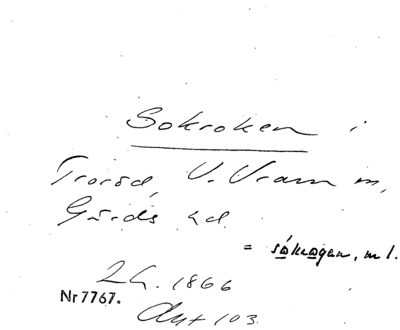 Sokroken i
Troröd, V. Vram m,
Gärds hd.
= såkrogan, m l.
1866
Nr 7767.
Akt 103.